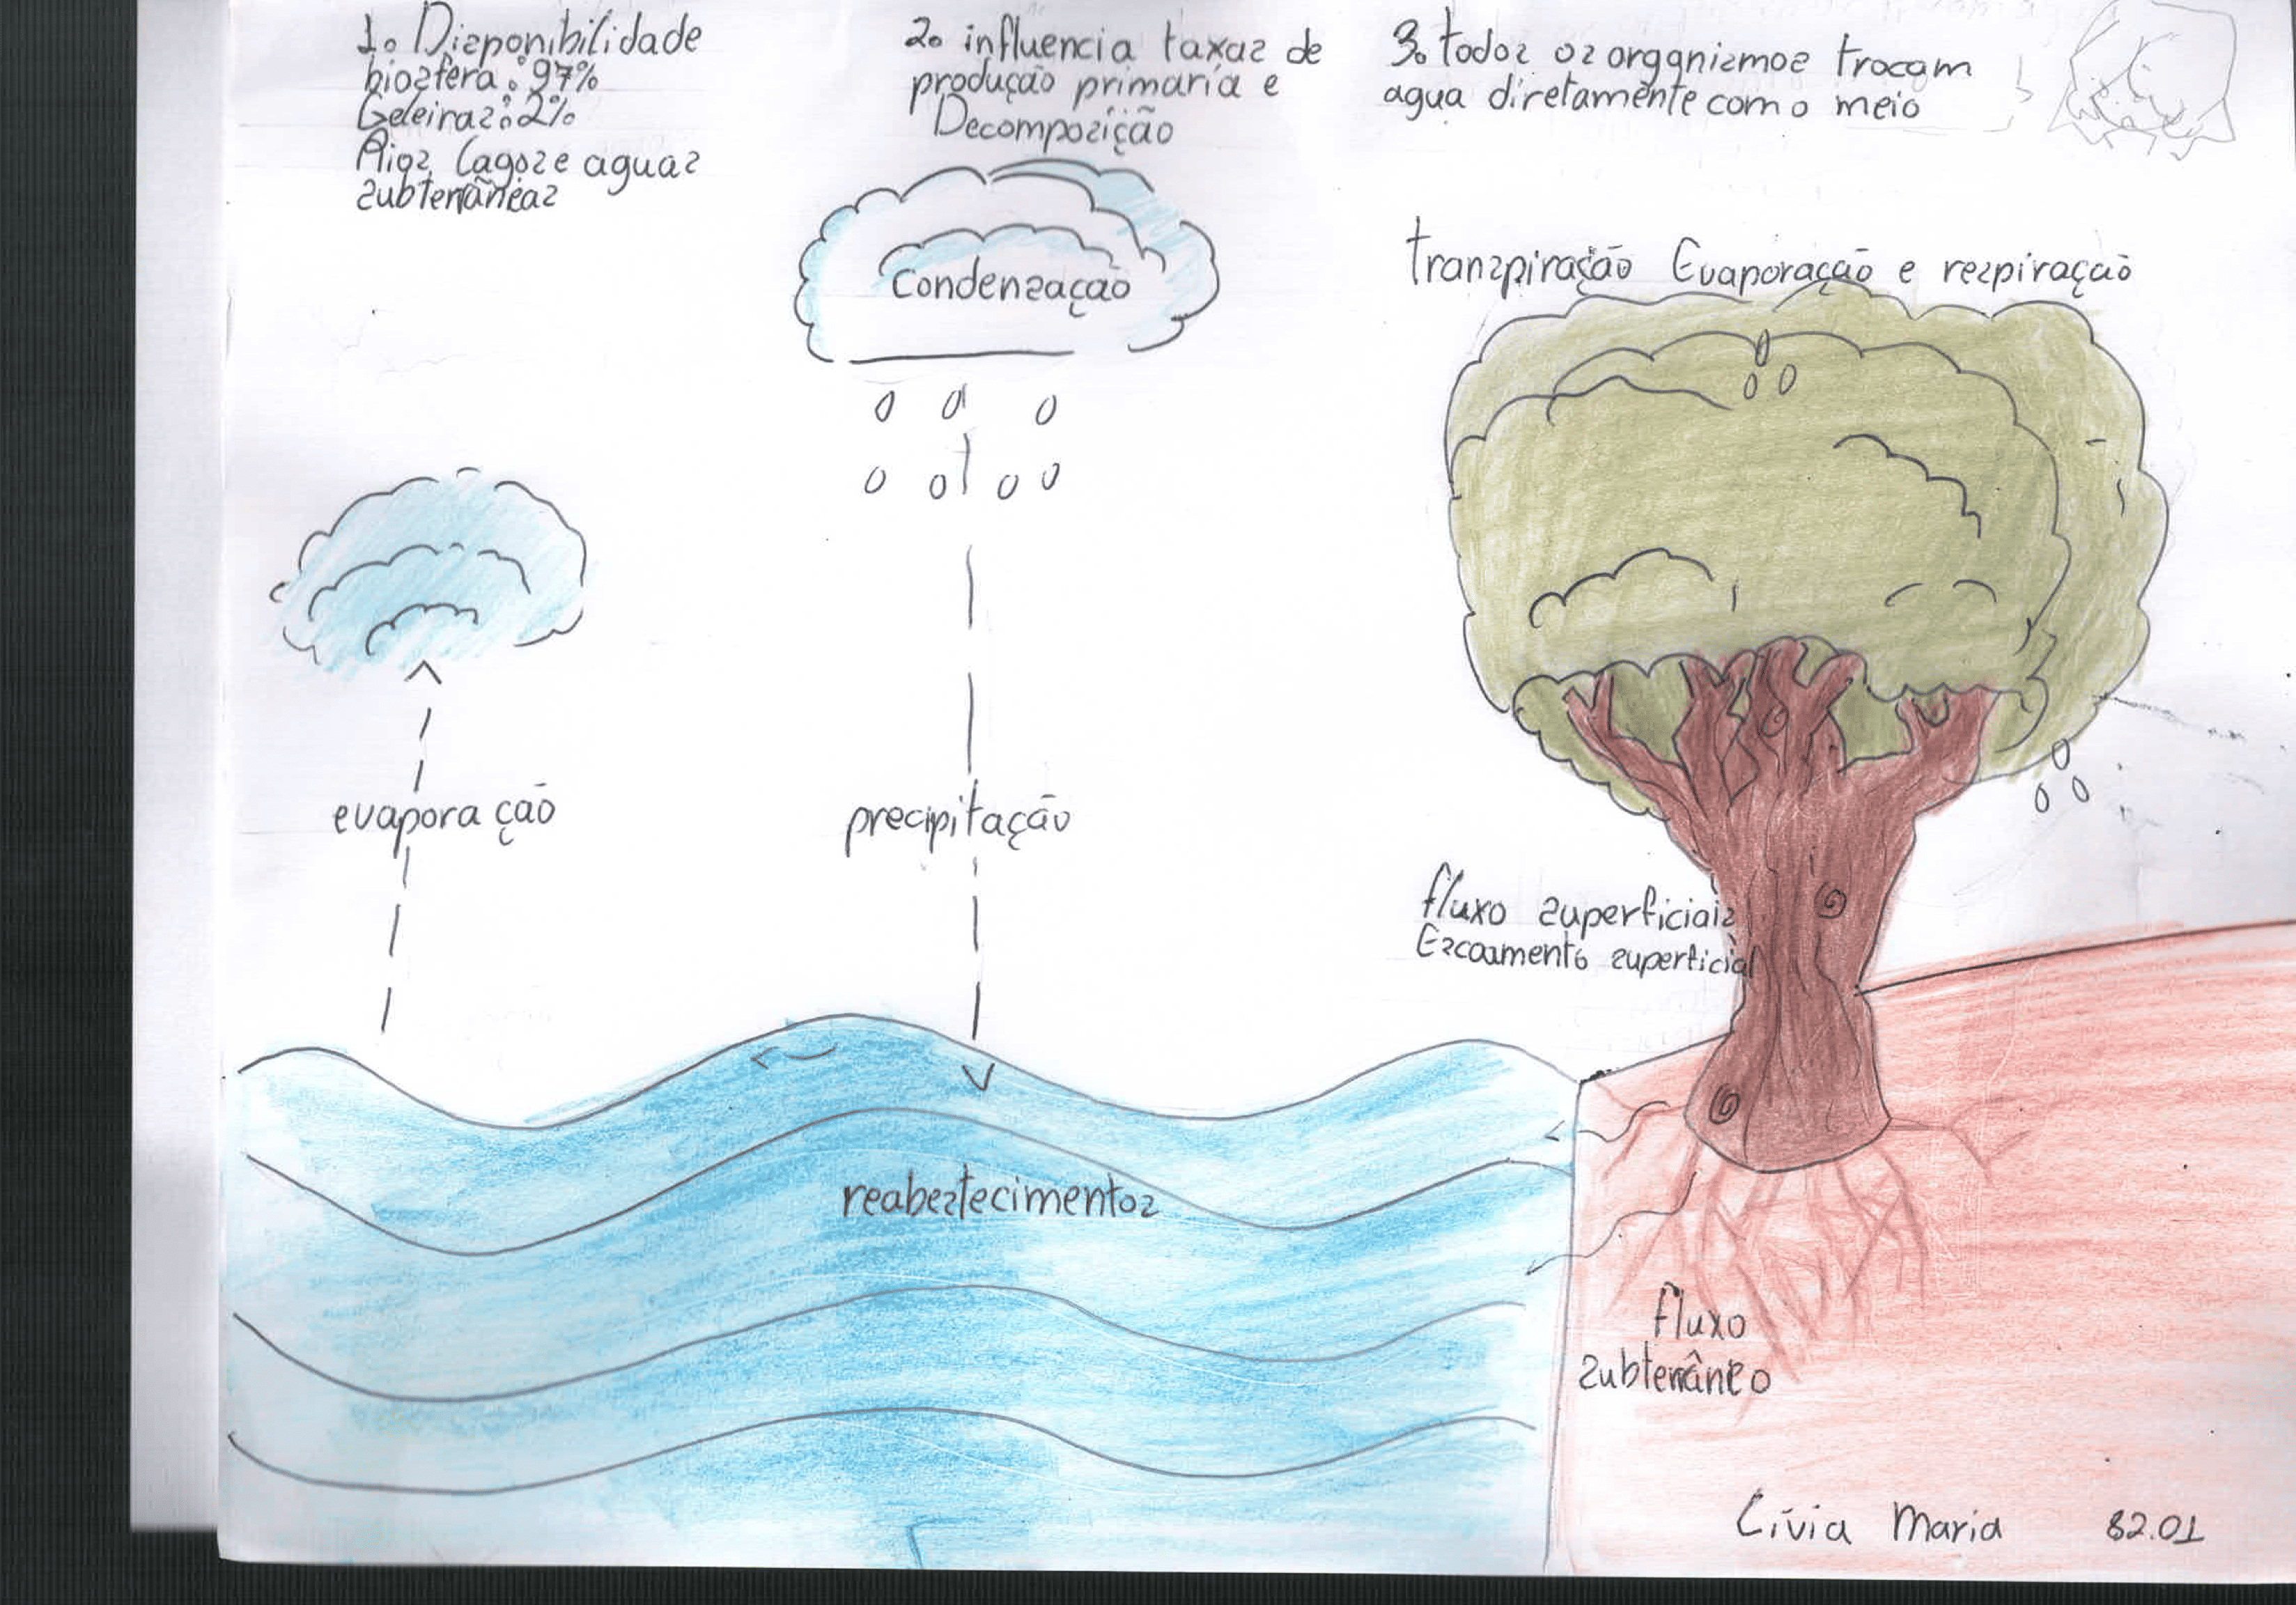 1. Disponibilidade
biosfera: 97%
Geleiras: 2%
Rios, Lagos e aguas
subterrâneas
2. influencia taxas de
produção primaria e
Decomposição
3. todos os organismos trocam
agua diretamente com o meio
Condensação
transpiração Evaporação e respiração
evaporação
precipitação
fluxo superficiais
Escoamento superficial
reabestecimentos
fluxo
subterrâneo
Lívia Maria 82.01